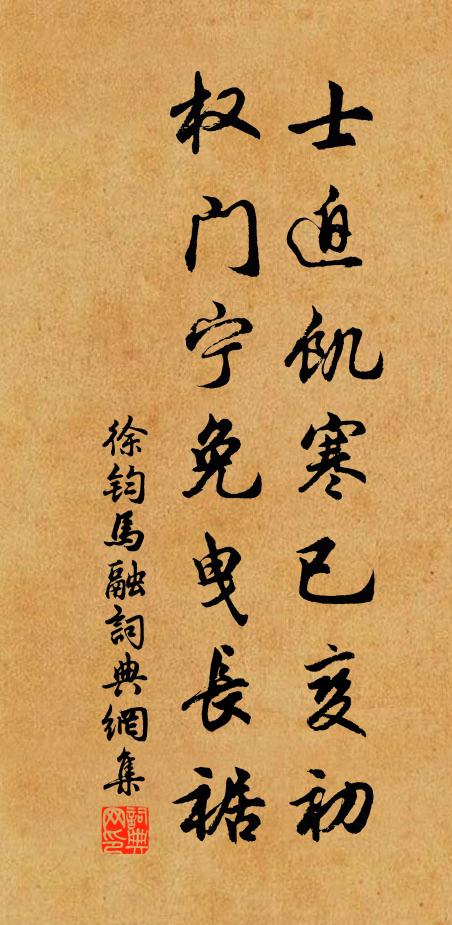 士迫飢寒已变初
权门宁免曳長裾
徐鈞馬融詞典網集
詞典网印